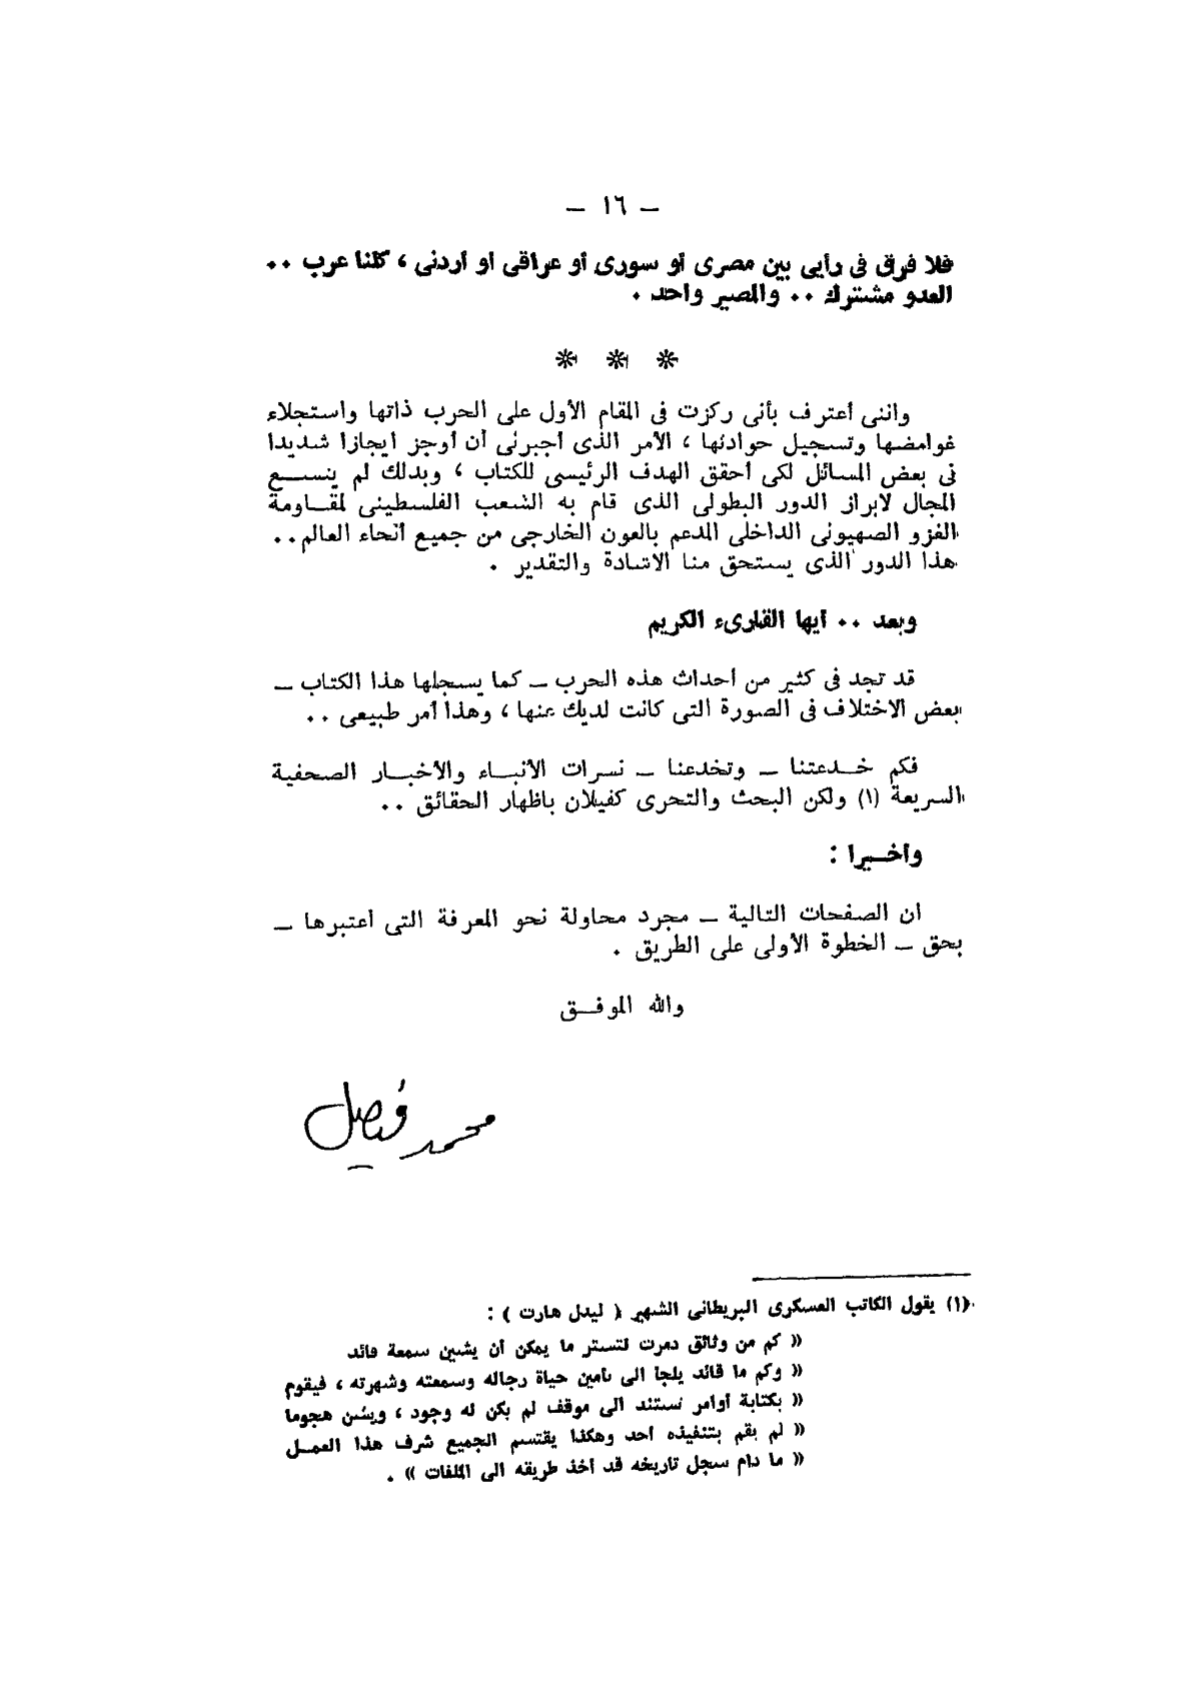 — ١٦ —
فلا فرق فى رأيى بين مصرى أو سورى أو عراقى أو أردنى ، كلنا عرب ..
العدو مشترك .. والمصير واحد .
* * *
واننى أعترف بأنى ركزت فى المقام الأول على الحرب ذاتها واستجلاء
غوامضها وتسجيل حوادثها ، الأمر الذى أجبرنى أن أوجز ايجازا شديدا
فى بعض المسائل لكى أحقق الهدف الرئيسى للكتاب ، وبذلك لم يتسع
المجال لابراز الدور البطولى الذى قام به الشعب الفلسطينى لمقاومة
الغزو الصهيونى الداخلى المدعم بالعون الخارجى من جميع أنحاء العالم ..
هذا الدور الذى يستحق منا الاشادة والتقدير .
وبعد .. أيها القارىء الكريم
قد تجد فى كثير من أحداث هذه الحرب — كما يسجلها هذا الكتاب —
بعض الاختلاف فى الصورة التى كانت لديك عنها ، وهذا أمر طبيعى ..
فكم خدعتنا — وتخدعنا — نشرات الأنباء والأخبار الصحفية
السريعة (١) ولكن البحث والتحرى كفيلان باظهار الحقائق ..
وأخيرا :
ان الصفحات التالية — مجرد محاولة نحو المعرفة التى أعتبرها —
بحق — الخطوة الأولى على الطريق .
والله الموفق
محمد فيصل
(١) يقول الكاتب العسكرى البريطانى الشهير ( ليدل هارت ) :
« كم من وثائق دمرت لتستر ما يمكن أن يشين سمعة قائد
« وكم ما قائد يلجأ الى تأمين حياة رجاله وسمعته وشهرته ، فيقوم
« بكتابة أوامر تستند الى موقف لم يكن له وجود ، ويشن هجوما
« لم يقم بتنفيذه أحد وهكذا يقتسم الجميع شرف هذا العمل
« ما دام سجل تاريخه قد أخذ طريقه الى الملفات » .